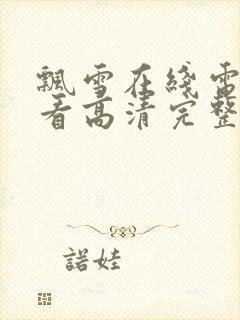 飄雪在綫電
看高清完整
諾娃